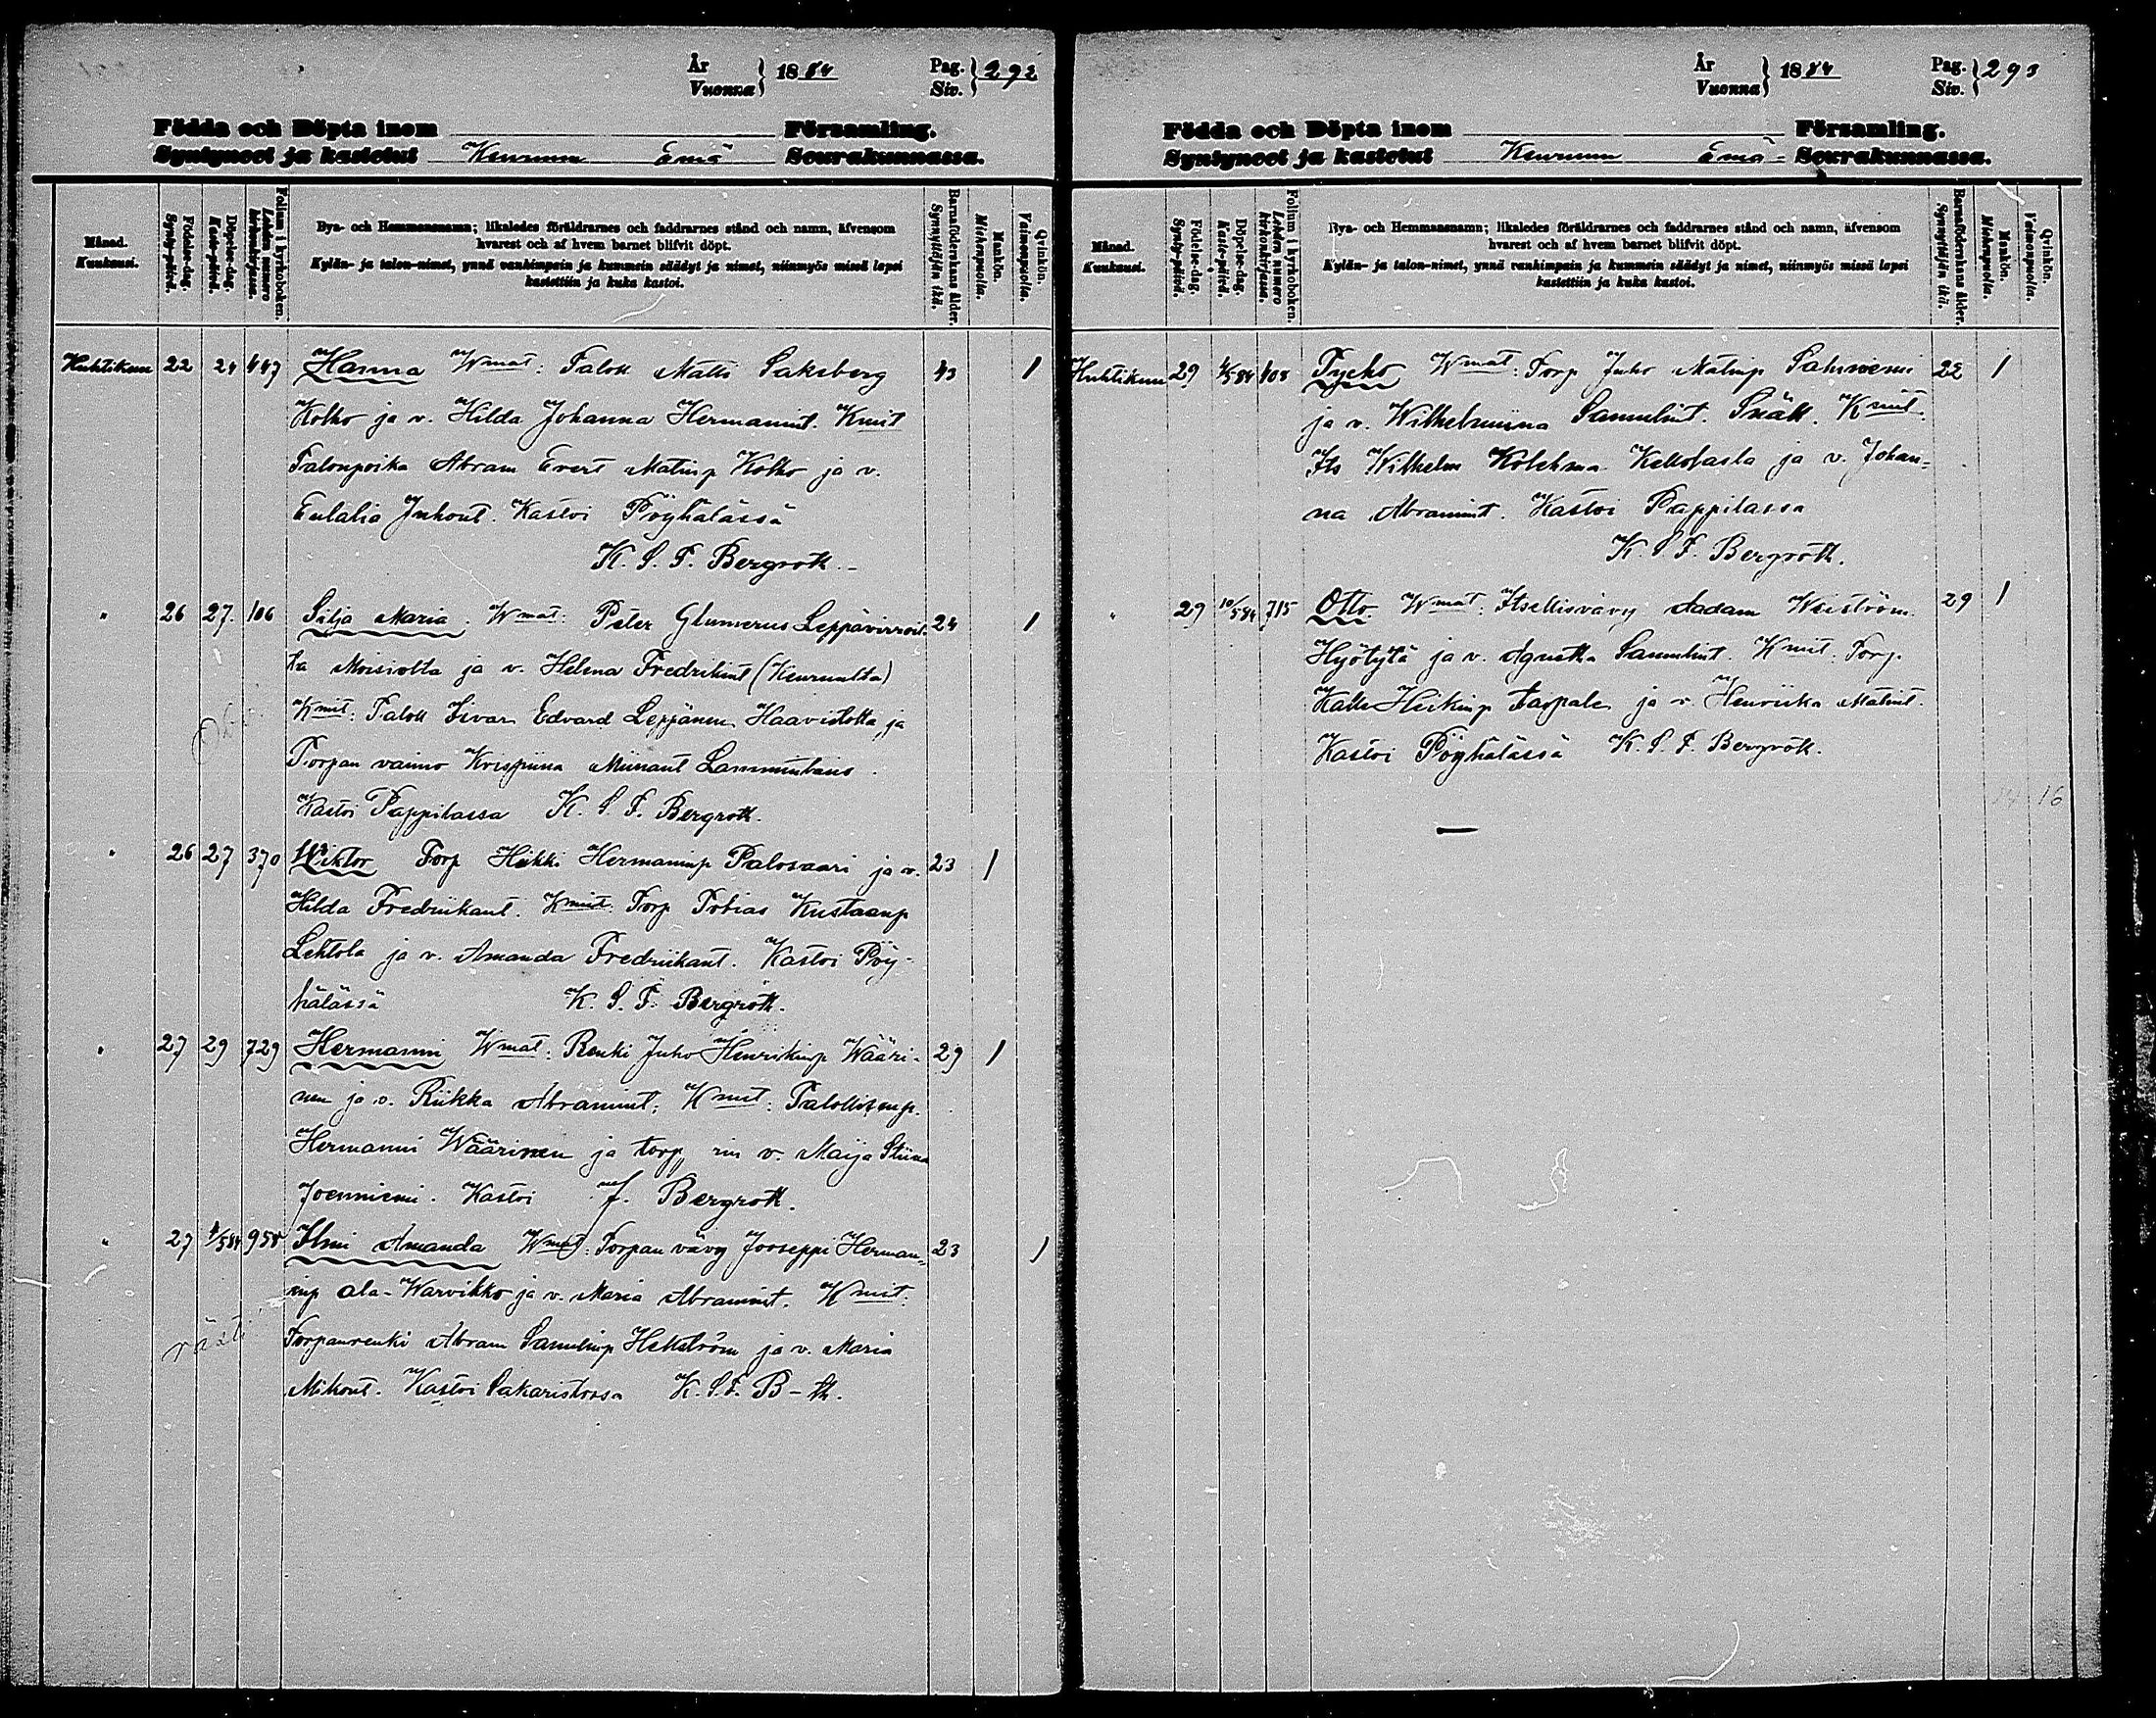 År
Vuonna } 1884
Pag.
Siv. } 292
Födda och Döpta inom Församling.
Syntyneet ja kastetut Keuruun Emä Seurakunnassa.
Månad.
Kuukausi.
Födelse-dag.
Synty-päivä.
Döpelse-dag.
Kaste-päivä.
Folium i kyrkoboken.
Lehden numero kirkonkirjassa.
Bya- och Hemmansnamn; likaledes föräldrarnes och faddrarnes stånd och namn, äfvensom
hvarest och af hvem barnet blifvit döpt.
Kylän- ja talon-nimet, ynnä vanhimpain ja kummein säädyt ja nimet, niinmyös missä lapsi
kastettiin ja kuka kastoi.
Barnaföderskans ålder.
Synnyttäjän ikä.
Mankön.
Miehenpuolia.
Qvinkön.
Vaimonpuolia.
Huhtikuu 22 24 447 Hanna Wmat: Talok Matti Saksberg 43 1
Kolho ja v. Hilda Johanna Hermannint. Kmit
Talonpoika Abram Evert Matinp Kolho ja v.
Eulalia Juhont. Kastoi Pöyhälässä
K. S. F. Bergroth.
" 26 27. 106 Silja Maria. Wmat: Peter Glumerus Leppävirroil- 24 1
ta Moisiolta ja v. Helena Fredrikint (Keuruulta)
Kmit: Talok Iivar Edvard Leppänen Haavistolta ja
Torpan vaimo Krispiina Miinant Lamminhaus
Kastoi Pappilassa K. S. F. Bergroth.
" 26 27 370 Wiktor Torp Heikki Hermaninp Palosaari ja v. 23 1
Hilda Fredriikant. Kmit: Torp Tobias Kustaanp
Lehtola ja v. Amanda Fredriikant. Kastoi Pöy-
hälässä K. S. F. Bergroth.
" 27 29 729 Hermanni Wmat: Renki Juho Henrikinp Wääri- 29 1
nen ja v. Riikka Abramint; Kmit: Talollisenp.
Hermanni Wäärinen ja torp rin v. Maija Stiina
Joenniemi. Kastoi F. Bergroth.
" 27 4/5 84 958 Ilmi Amanda Wmat: Torpan vävy Jooseppi Herman- 23 1
inp ala-Warvikko ja v. Maria Abramint. Kmit:
Torpanrenki Abram Samulinp Hellström ja v. Maria
Mikont. Kastoi Sakaristossa K. S. F. B-th.
År
Vuonna } 1884
Pag.
Siv. } 293
Födda och Döpta inom Församling.
Syntyneet ja kastetut Keuruun Emä- Seurakunnassa.
Månad.
Kuukausi.
Födelse-dag.
Synty-päivä.
Döpelse-dag.
Kaste-päivä.
Folium i kyrkoboken.
Lehden numero kirkonkirjassa.
Bya- och Hemmansnamn; likaledes föräldrarnes och faddrarnes stånd och namn, äfvensom
hvarest och af hvem barnet blifvit döpt.
Kylän- ja talon-nimet, ynnä vanhimpain ja kummein säädyt ja nimet, niinmyös missä lapsi
kastettiin ja kuka kastoi.
Barnaföderskans ålder.
Synnyttäjän ikä.
Mankön.
Miehenpuolia.
Qvinkön.
Vaimonpuolia.
Huhtikuu 29 4/5 84 408 Tycho Wmat: Torp Juho Matinp Salmiemi 22 1
ja v. Wilhelmiina Samulint. Snäll. Kmit.
Its Wilhelm Kolehma Kellosalla ja v. Johan-
na Abramint. Kastoi Pappilassa
K. S. F. Bergroth.
" 29 10/5 84 715 Otto Wmat: Itsellisvävy Aadam Weiström 29 1
Hyötytä ja v. Agnetta Samulint. Kmit: Torp.
Kalle Heikinp Taipale ja v. Henriika Matint.
Kastoi Pöyhälässä K. S. F. Bergroth.
14 16